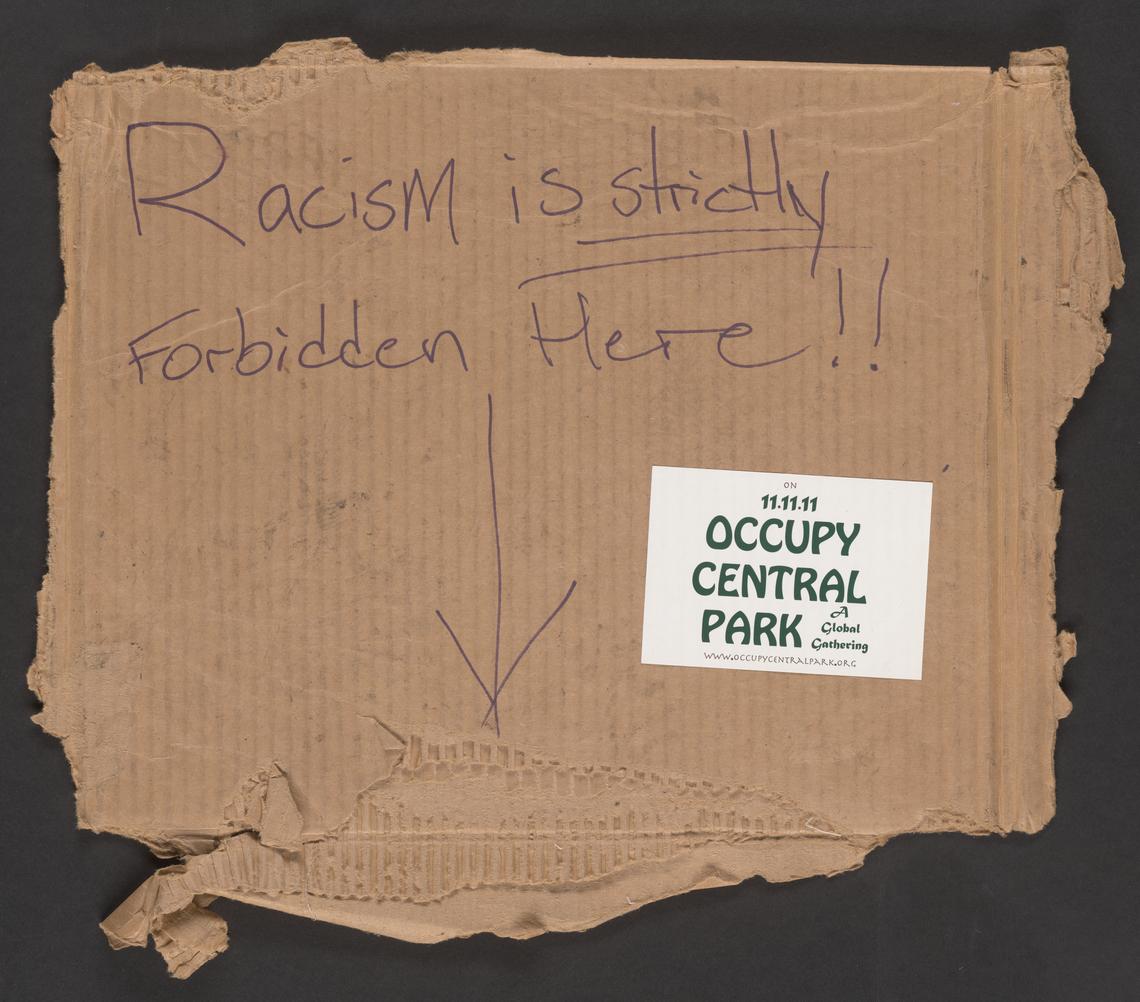 Racism is strictly
Forbidden Here!!
ON
11.11.11
OCCUPY
CENTRAL
PARK
A
Global
Gathering
WWW.OCCUPYCENTRALPARK.ORG